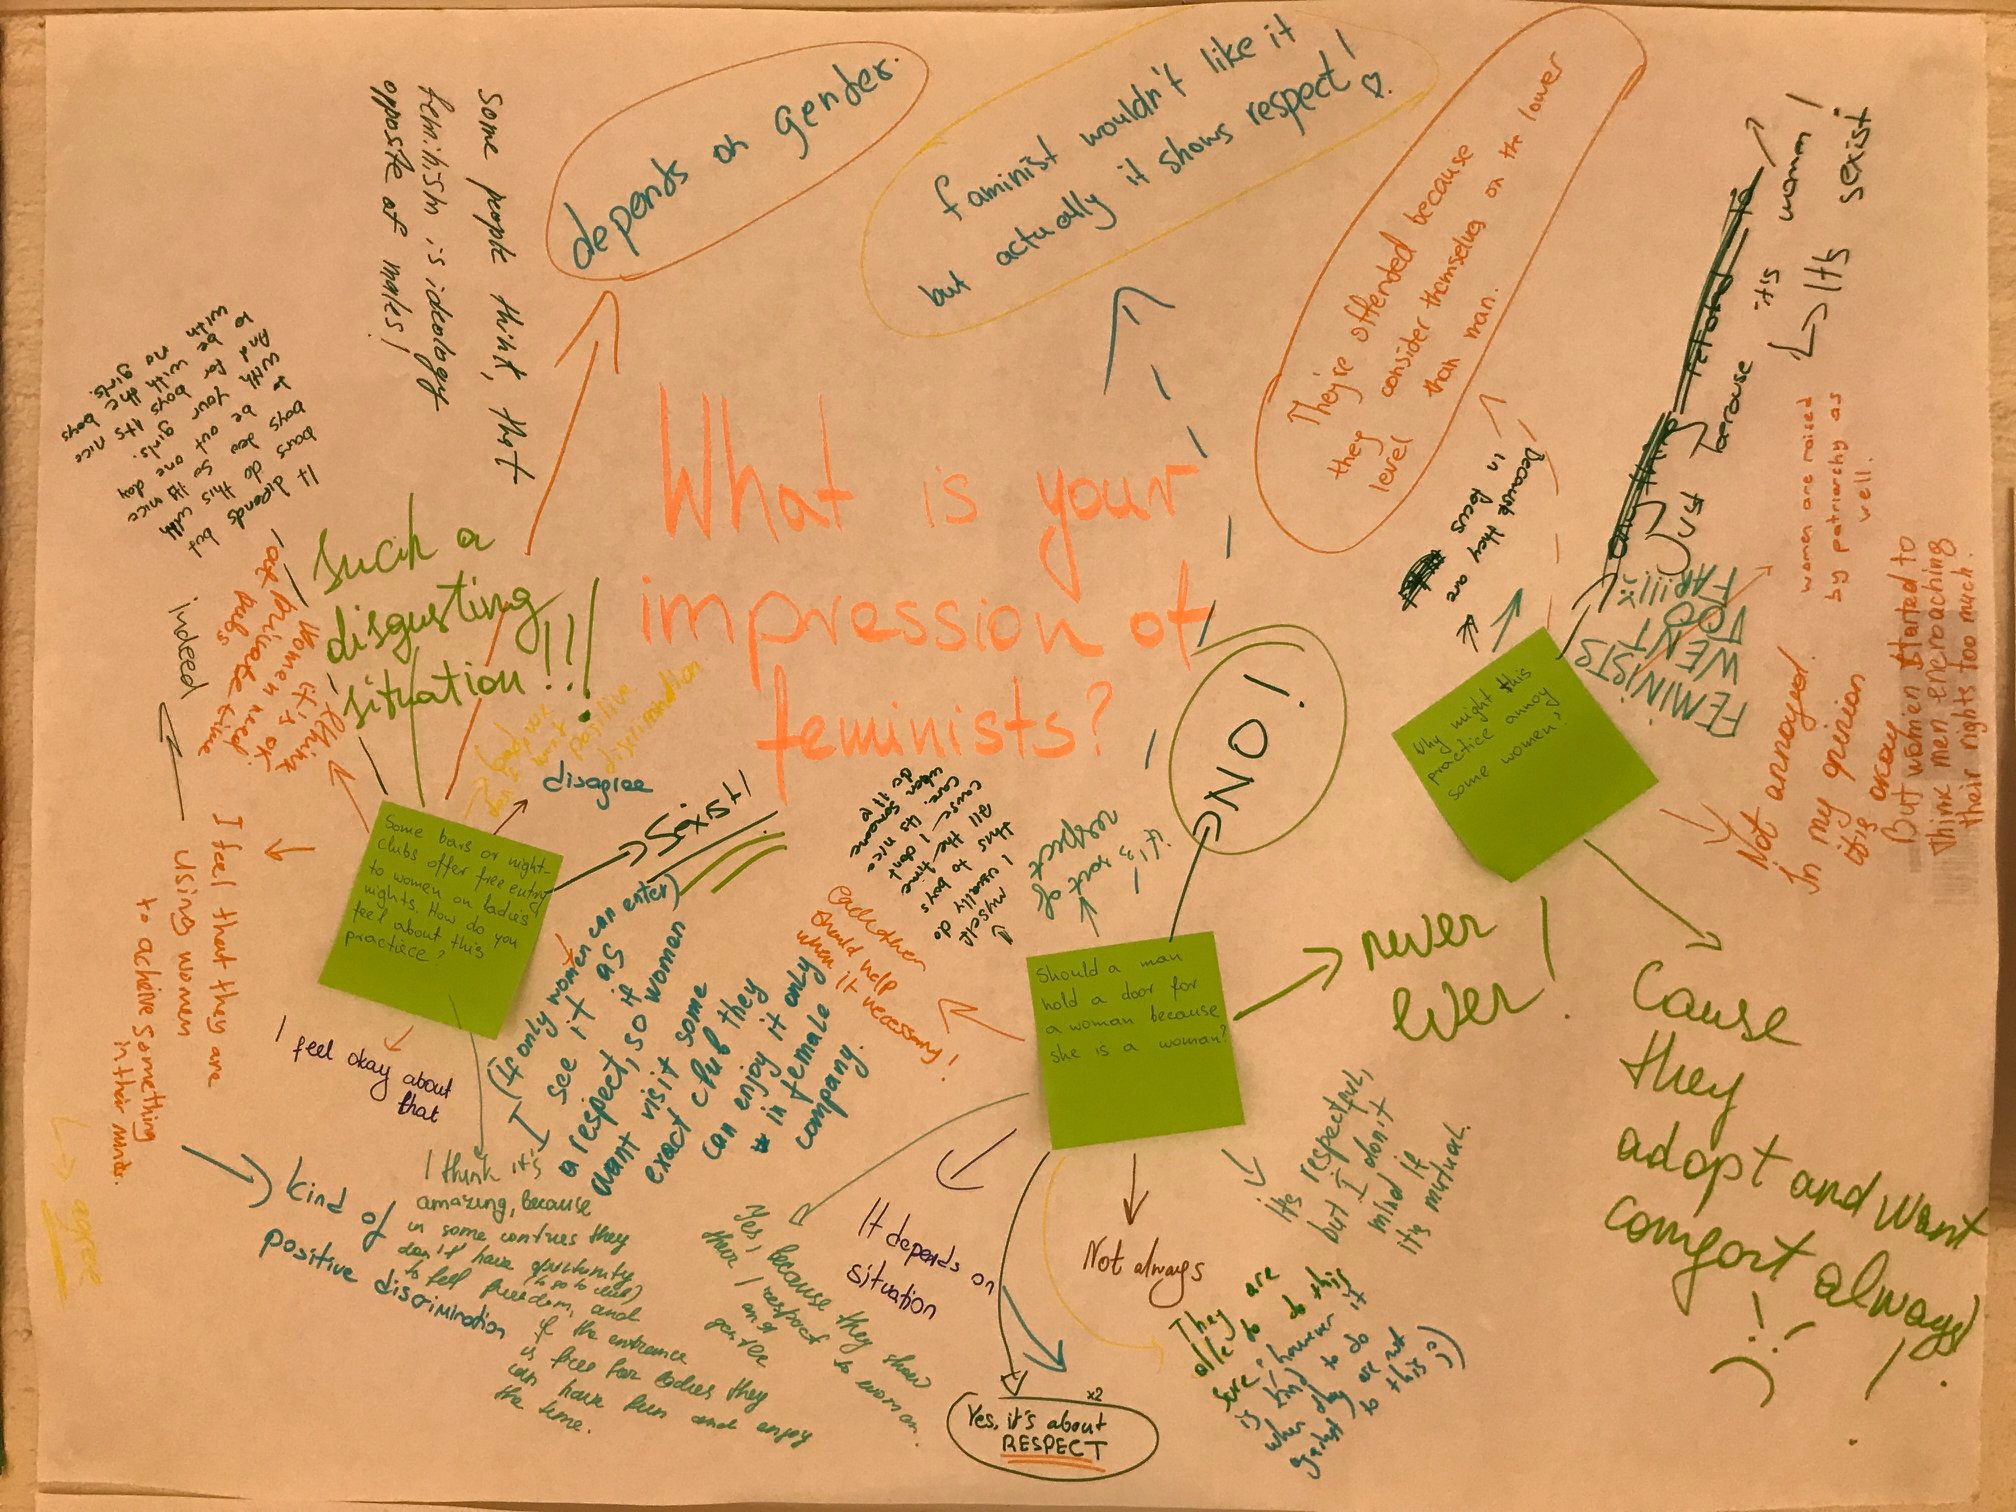 What is your
impression of
feminists?
depends on gender.
faminist wouldn't like it
but actually it shows respect!
They're offended because
they consider themselves on the lower
level than man.
Some people think, that
feminism is ideology
opposite of males!
because they are
in focus
Just because its womm!
Its sexist
women are raised
by patriarchy as
well.
FEMINISTS
WENT
TOO
FAR!!!! :(
Why might this
practice annoy
some women?
Not annoyed.
In my opinion
it's okay
But women started to
think men encroaching
their rights too much.
Cause
they
adopt and want
comfort always!
Some bars or night-
clubs offer free entry
to women on ladies
nights. How do you
feel about this
practiece?
Such a
disgusting
situation!!!
It dipends
bars do this with
boys deo so its nice
to be out one day
with your girls.
And for boys its nice
to be with the boys
with no girls.
I think
women it's ok
women need
private time
pubs
Indeed
positive
discrimination
disagree
Sexist!
I feel that they are
using women
to achieve something
in their minds.
agree
I feel okay about
that
kind of
positive discrimination
I think it's
amazing, because
in some contries they
don't have oportunity
(to go to club)
to feel freedom, and
if the entrance
is free for ladies they
can have fun and enjoy
the time.
(If only women can enter)
I see it as
a respect, so if woman
want visit some
exact club they
can enjoy it only
in female
company.
Should a man
hold a door for
a woman because
she is a woman?
NO!
it's
rout of
respect
myself
I usually do
this to boys
All the time
cause I dont
care. its nice
when someone
do it
each other
should help
when it necessary!
never
ever!
Yes, because they show
their respect to woman
and
gender
It depends on
situation
Not always
x2
Yes, it's about
RESPECT
its respectful,
but I don't
mind if
its mutual.
They are
able to do this
sure, however it
is kind to do
when day are not
against to this :))